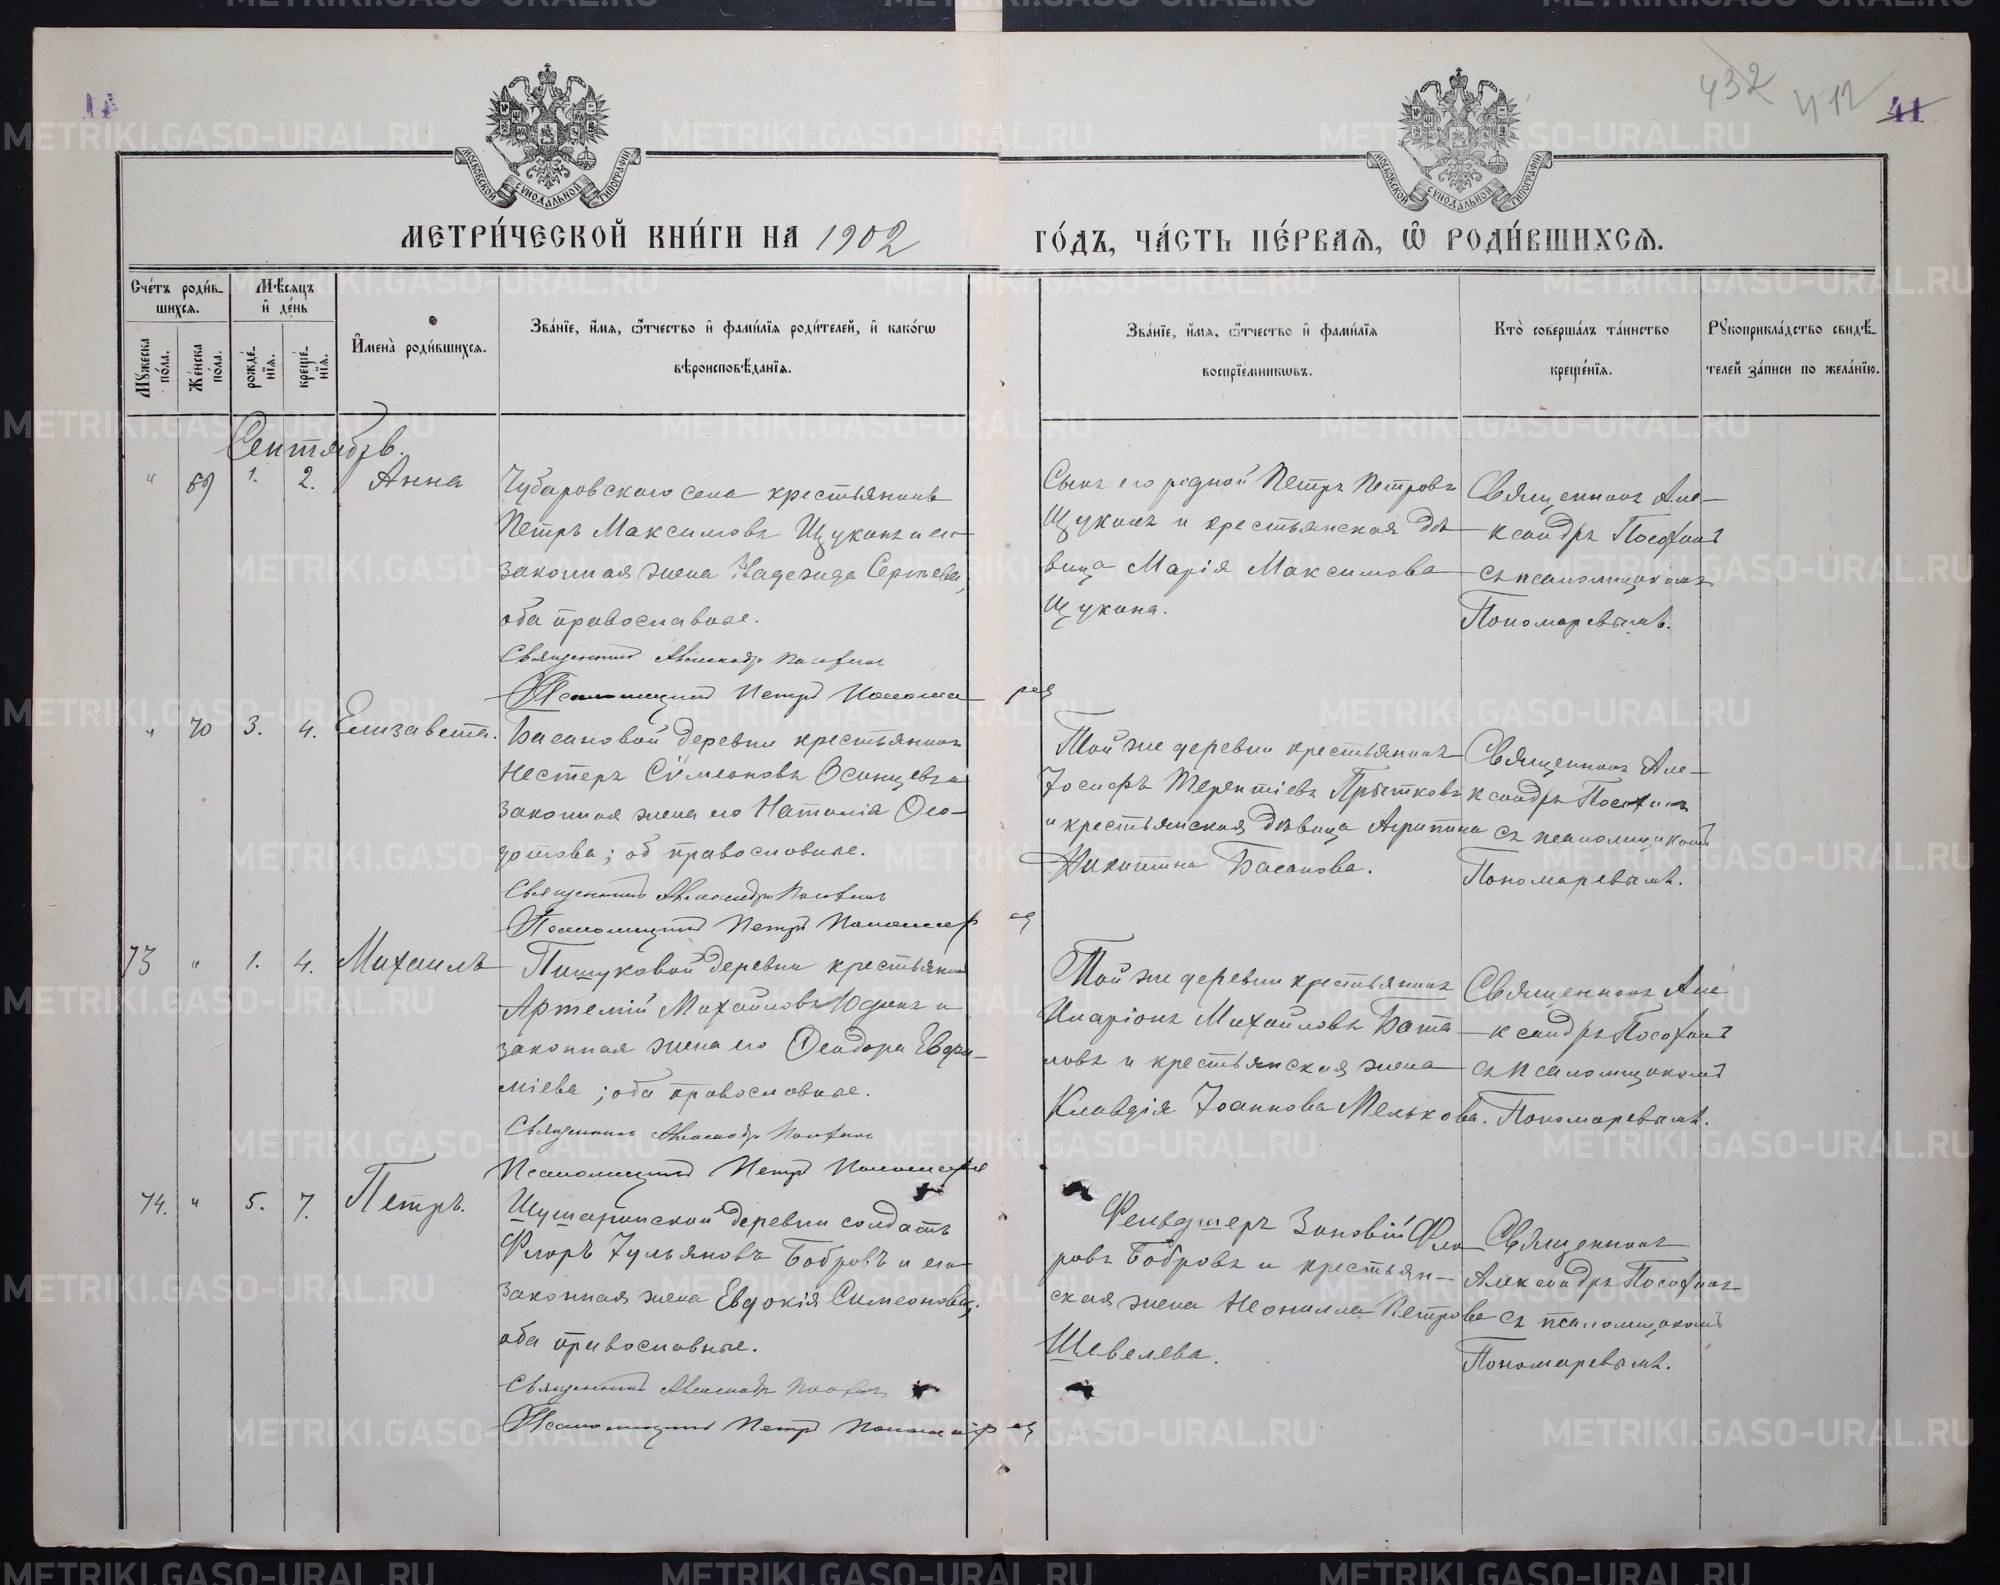 432 412 41
МОСКОВСКОЙ СѴНОДАЛЬНОЙ ТИПОГРАФІИ
МОСКОВСКОЙ СѴНОДАЛЬНОЙ ТИПОГРАФІИ
МЕТРИ́ЧЕСКОЙ КНИ́ГИ НА 1902
ГО́ДЪ, ЧА́СТЬ ПЕ́РВАЯ, Ѽ РОДИ́ВШИХСЯ.
Сче́тъ роди́в-
шихся.
Мѣ́сяцъ
и҆ де́нь
Мꙋ́жеска по́ла.
Же́нска по́ла.
рожде́-нїя.
креще́-нїя.
И҆мена̀ роди́вшихся.
Зва́нїе, и҆́мя, ѻ҆́тчество и҆ фами́лїя роди́телей, и҆ како́гѡ
вѣроисповѣ́данїя.
Зва́нїе, и҆́мя, ѻ҆́тчество и҆ фами́лїя
воспрїе́мниковъ.
Кто̀ соверша́лъ та́инство
креще́нїя.
Рꙋкоприкла́дство свидѣ́-
телей за́писи по жела́нїю.
Сентябрь.
" 69 1. 2. Анна
Чубаровскаго села крестьянинъ
Петръ Максимовъ Щукинъ и его
законная жена Надежда Сергѣева,
оба православные.
Священникъ Александръ Посохинъ
Псаломщикъ Петръ Пономарев
Сынъ его родной Петръ Петровъ
Щукинъ и крестьянская дѣ-
вица Марія Максимова
Щукина.
Священникъ Але-
ксандръ Посохинъ
съ псаломщикомъ
Пономаревымъ.
" 70 3. 4. Елизавета.
Басановой деревни крестьянинъ
Нестеръ Сѵмеоновъ Осинцевъ и
законная жена его Наталія Ѳео-
дотова; об православные.
Священникъ Александръ Посохинъ
Псаломщикъ Петръ Пономарев
Той же деревни крестьянинъ
Іосифъ Терентіевъ Прытковъ
и крестьянская дѣвица Агрипина
Никитина Басанова.
Священникъ Але-
ксандръ Посохинъ
съ псаломщикомъ
Пономаревымъ.
73 " 1. 4. Михаилъ
Пишуковой деревни крестьянинъ
Артемій Михайловъ Юдинъ и
законная жена его Ѳеодора Евфи-
міева; оба православные.
Священникъ Александръ Посохинъ
Псаломщикъ Петръ Пономарев
Той же деревни крестьянинъ
Иларіонъ Михайловъ Бата-
ловъ и крестьянская жена
Клавдія Іоаннова Мелькова.
Священникъ Але-
ксандръ Посохинъ
съ псаломщикомъ
Пономаревымъ.
74. " 5. 7. Петръ.
Шушаринской деревни солдатъ
Флоръ Іульяновъ Бобровъ и его
законная жена Евдокія Симеонова,
оба православные.
Священникъ Александръ Посохинъ
Псаломщикъ Петръ Пономарев
Фельдшеръ Зиновій Фло-
ровъ Бобровъ и крестьян-
ская жена Неонилла Петрова
Шевелева.
Священникъ
Александръ Посохинъ
съ псаломщикомъ
Пономаревымъ.
METRIKI.GASO-URAL.RU